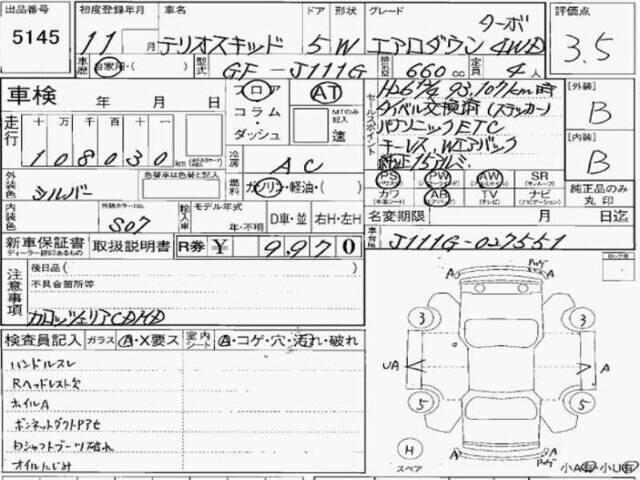 出品番号 初度登録年月 車名 ドア 形状 グレード 評価点
5145 11 月 テリオスキッド 5 W エアロダウン ターボ 4WD 3.5
車歴 自家用・( ) 型式 GF-J111G 排気量 660cc 定員 4人
車検 年 月 日
フロア コラム・ダッシュ AT MTのみ記入 速
セールスポイント
H26 93,107km時
タイベル交換済(ステッカー)
パナソニックETC
キーレス、Wエアバック
純正15アルミ
[外装] B
[内装] B
走行 十 万 千 百 十 一
108030 km
冷房 AC
外装色 シルバー 色替車は色替と記入
燃料 ガソリン・軽油・( )
PS PW AW SR (サンルーフ)
カワ AB TV ナビ
純正品のみ丸印
内装色 外装カラーNo. S07
輸入車 モデル年式 年・不明 D車・並 右H・左H
名変期限 月 日迄
新車保証書 取扱説明書 R券 ¥ 9,970
ディーラー捺印あるもの
車台No. J111G-027551
注意事項 後日品( )
不具合箇所等
カロッツェリアCDMD
検査員記入 ガラス A・X要ス 室内シート A・コゲ・穴・汚れ・破れ
ハンドルスレ
Rヘッドレスト欠
ホイルA
ボンネットダクトPアセ
Dシャフトブーツ破れ
オイルにじみ
A A
3 3
UA A
5 5
H スペア
A A
小A有 小U有